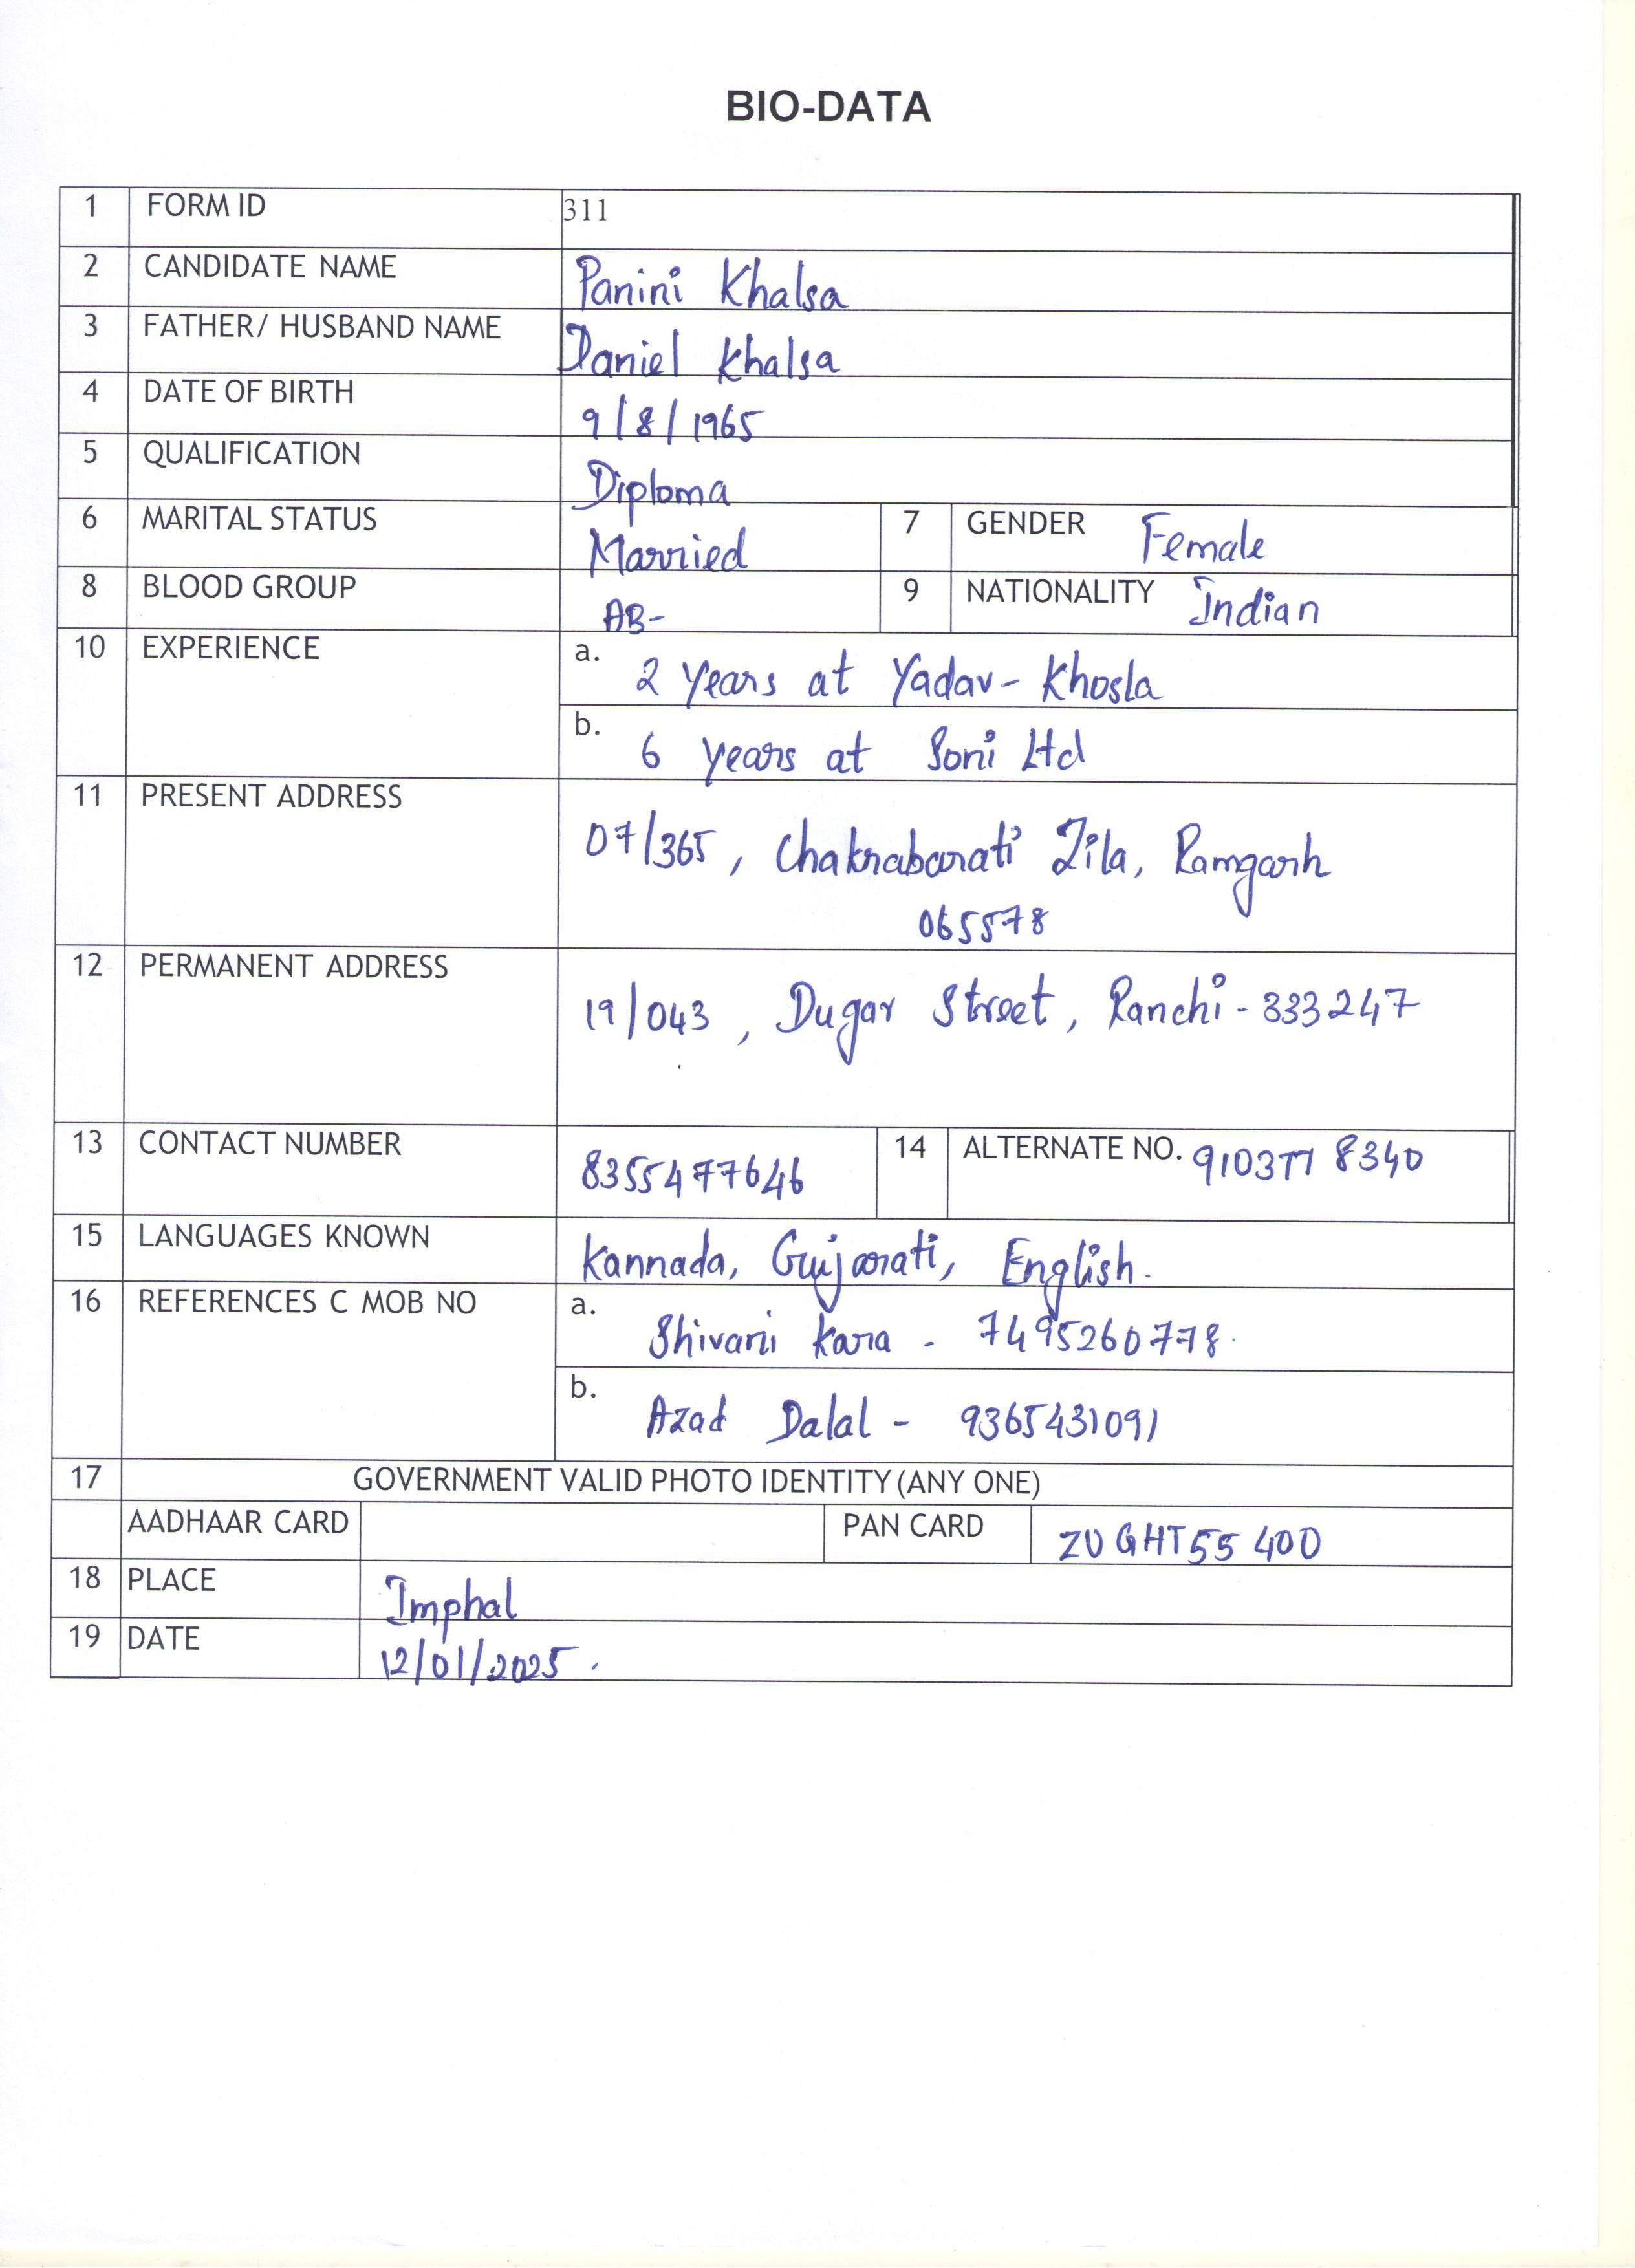 BIO-DATA
1 FORM ID 311
2 CANDIDATE NAME Panini Khalsa
3 FATHER/ HUSBAND NAME Daniel Khalsa
4 DATE OF BIRTH 9/8/1965
5 QUALIFICATION Diploma
6 MARITAL STATUS Married 7 GENDER Female
8 BLOOD GROUP AB- 9 NATIONALITY Indian
10 EXPERIENCE a. 2 years at Yadav-Khosla
b. 6 years at Soni Ltd
11 PRESENT ADDRESS 07/365, Chakrabarati Zila, Ramgarh
065578
12 PERMANENT ADDRESS 19/043, Dugar Street, Ranchi-333247
13 CONTACT NUMBER 8355477646 14 ALTERNATE NO. 9103778340
15 LANGUAGES KNOWN Kannada, Gujarati, English.
16 REFERENCES C MOB NO a. Shivani Kara - 7495260778.
b. Azad Dalal - 9365431091
17 GOVERNMENT VALID PHOTO IDENTITY (ANY ONE)
AADHAAR CARD PAN CARD ZUGHT5540D
18 PLACE Imphal
19 DATE 12/01/2025.